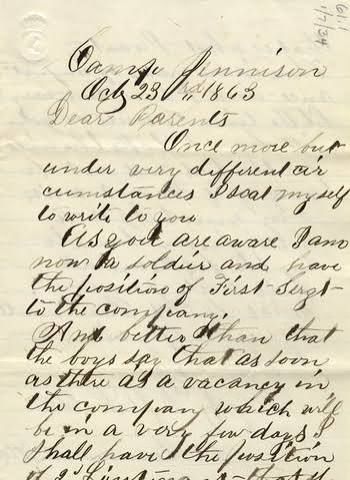 Camp Dennison
Oct 23rd 1863
Dear Parents
Once more but
under very different cir
cumstances I seat myself
to write to you
As you are aware I am
now a soldier and have
the position of First Sergt
to the company.
And better than that
the boys say that as soon
as there is a vacancy in
the company which will
be in a very few days I
shall have the position
of 2d